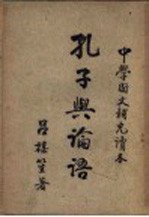 中學國文補充讀本
孔子與論語
呂樸笙著